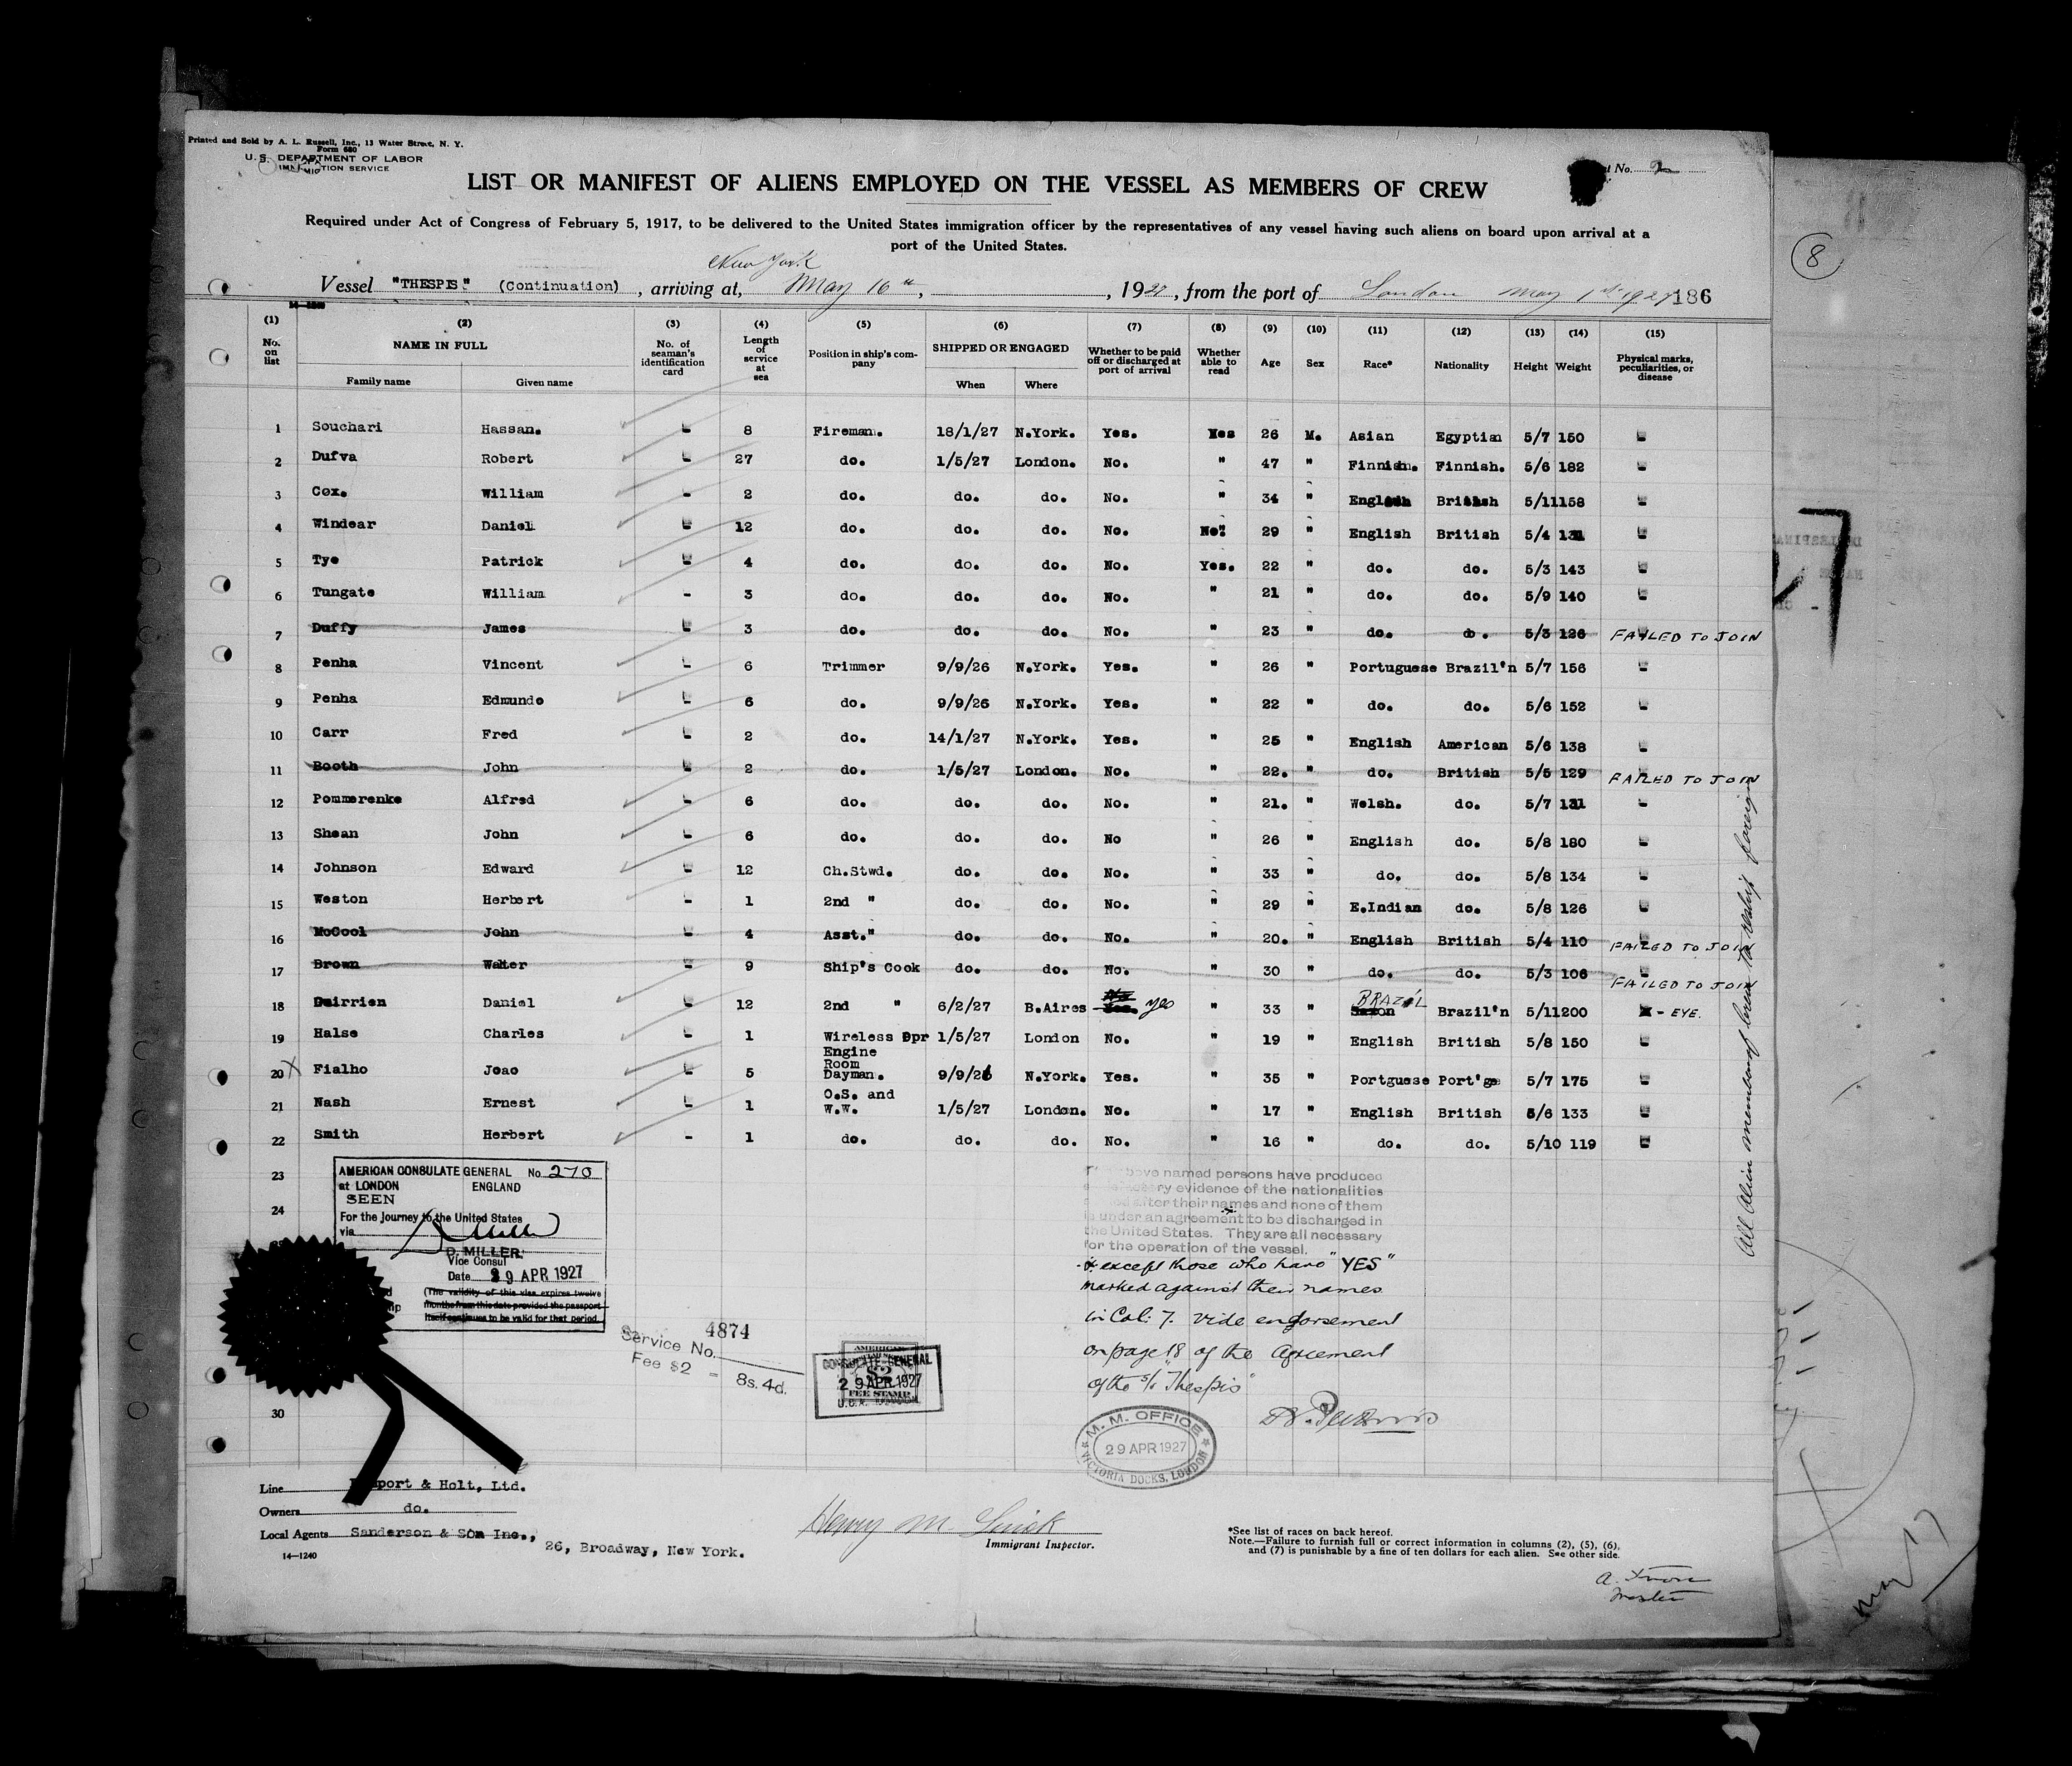 Printed and Sold by A. L. Russell, Inc., 13 Water Street, N. Y.
Form 680
U. S. DEPARTMENT OF LABOR
IMMIGRATION SERVICE
No. 2
LIST OR MANIFEST OF ALIENS EMPLOYED ON THE VESSEL AS MEMBERS OF CREW
Required under Act of Congress of February 5, 1917, to be delivered to the United States immigration officer by the representatives of any vessel having such aliens on board upon arrival at a
port of the United States.
New York
Vessel "THESPIS." (Continuation), arriving at, May 16th, 1927, from the port of London May 1st 1927 186
8
(1) (2) (3) (4) (5) (6) (7) (8) (9) (10) (11) (12) (13) (14) (15)
No. on list NAME IN FULL Family name Given name No. of seaman's identification card Length of service at sea Position in ship's company SHIPPED OR ENGAGED When Where Whether to be paid off or discharged at port of arrival Whether able to read Age Sex Race* Nationality Height Weight Physical marks, peculiarities, or disease
1 Souchari Hassan. - 8 Fireman. 18/1/27 N.York. Yes. Yes 26 M. Asian Egyptian 5/7 150 -
2 Dufva Robert - 27 do. 1/5/27 London. No. " 47 " Finnish. Finnish. 5/6 182 -
3 Cox. William - 2 do. do. do. No. " 34 " English British 5/11 158 -
4 Windear Daniel - 12 do. do. do. No. No. 29 " English British 5/4 131 -
5 Tye Patrick - 4 do. do. do. No. Yes. 22 " do. do. 5/3 143 -
6 Tungate William - 3 do. do. do. No. " 21 " do. do. 5/9 140 -
7 Duffy James - 3 do. do. do. No. " 23 " do. do. 5/3 126 FAILED TO JOIN
8 Penha Vincent - 6 Trimmer 9/9/26 N.York. Yes. " 26 " Portuguese Brazil'n 5/7 156 -
9 Penha Edmundo - 6 do. 9/9/26 N.York. Yes. " 22 " do. do. 5/6 152 -
10 Carr Fred - 2 do. 14/1/27 N.York. Yes. " 25 " English American 5/6 138 -
11 Booth John - 2 do. 1/5/27 London. No. " 22. " do. British 5/5 129 FAILED TO JOIN
12 Pommerenke Alfred - 6 do. do. do. No. " 21. " Welsh. do. 5/7 131 -
13 Shean John - 6 do. do. do. No " 26 " English do. 5/8 180 -
14 Johnson Edward - 12 Ch.Stwd. do. do. No. " 33 " do. do. 5/8 134 -
15 Weston Herbert - 1 2nd " do. do. No. " 29 " E.Indian do. 5/8 126 -
16 McCool John - 4 Asst." do. do. No. " 20. " English British 5/4 110 FAILED TO JOIN
17 Brown Walter - 9 Ship's Cook do. do. No. " 30 " do. do. 5/3 106 FAILED TO JOIN
18 Guirrien Daniel - 12 2nd " 6/2/27 B.Aires No Yes. yes " 33 " Saxon BRAZIL Brazil'n 5/11 200 - EYE.
19 Halse Charles - 1 Wireless Opr 1/5/27 London No. " 19 " English British 5/8 150 -
20 X Fialho Joao - 5 Engine Room Dayman. 9/9/26 N.York. Yes. " 35 " Portguese Port'ge 5/7 175 -
21 Nash Ernest - 1 O.S. and W.W. 1/5/27 London. No. " 17 " English British 5/6 133 -
22 Smith Herbert - 1 do. do. do. No. " 16 " do. do. 5/10 119 -
23
24
30
All Alien members of crew
foreign
AMERICAN CONSULATE GENERAL No. 270
at LONDON ENGLAND
SEEN
For the Journey to the United States
via
D. MILLER.
Vice Consul
Date 29 APR 1927
(The validity of this visa expires twelve
months from this date provided the passport
itself continues to be valid for that period.
Service No. 4874
Fee $2 = 8s. 4d.
AMERICAN
CONSULATE-GENERAL
$2
29 APR 1927
FEE STAMP
named persons have produced
evidence of the nationalities
after their names and none of them
is under an agreement to be discharged in
the United States. They are all necessary
for the operation of the vessel.
x except those who have "YES"
marked against their names
in Col: 7. vide endorsement
on page 18 of the Agreement
of the s/s "Thespis"
M. M. OFFICE
29 APR 1927
VICTORIA DOCKS, LONDON
Line port & Holt, Ltd.
Owners do.
Local Agents Sanderson & Son Inc., 26, Broadway, New York.
14—1240
Henry M.
Immigrant Inspector.
*See list of races on back hereof.
Note.—Failure to furnish full or correct information in columns (2), (5), (6),
and (7) is punishable by a fine of ten dollars for each alien. See other side.
Master
May 17